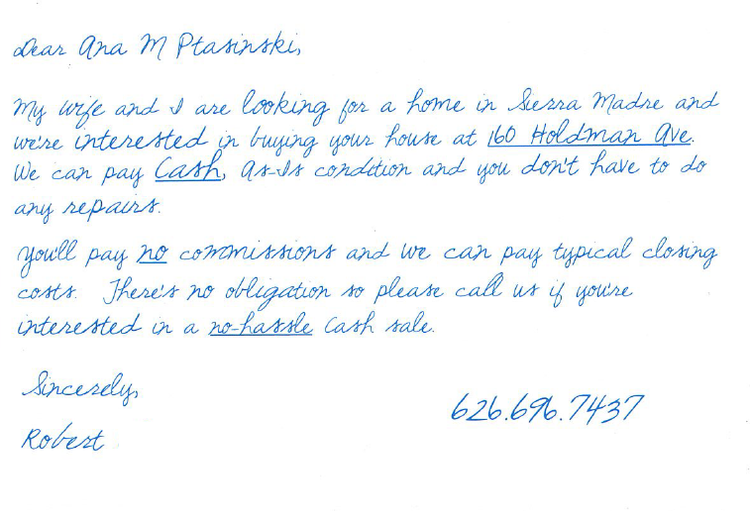 Dear Ana M Ptasinski,
My wife and I are looking for a home in Sierra Madre and
we're interested in buying your house at 160 Holdman Ave.
We can pay Cash, As-Is condition and you don't have to do
any repairs.
You'll pay no commissions and we can pay typical closing
costs. There's no obligation so please call us if you're
interested in a no-hassle Cash sale.
Sincerely,
626.696.7437
Robert